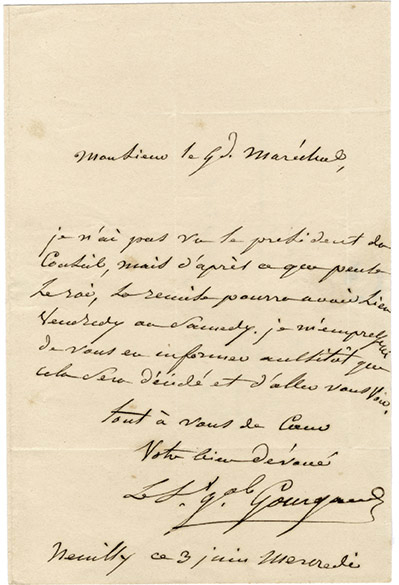 Monsieur le Gd. Maréchal,
je n'ai pas vu le président du
Conseil, mais d'après ce que pense
le roi, la remise pourra avoir lieu
Vendredy ou Samedy. je m'empresserai
de vous en informer aussitôt que
cela sera décidé et d'aller vous voir.
tout à vous de Coeur
Votre bien dévoué
Le Lt. gal. Gourgaud
Neuilly ce 3 juin Mercredi